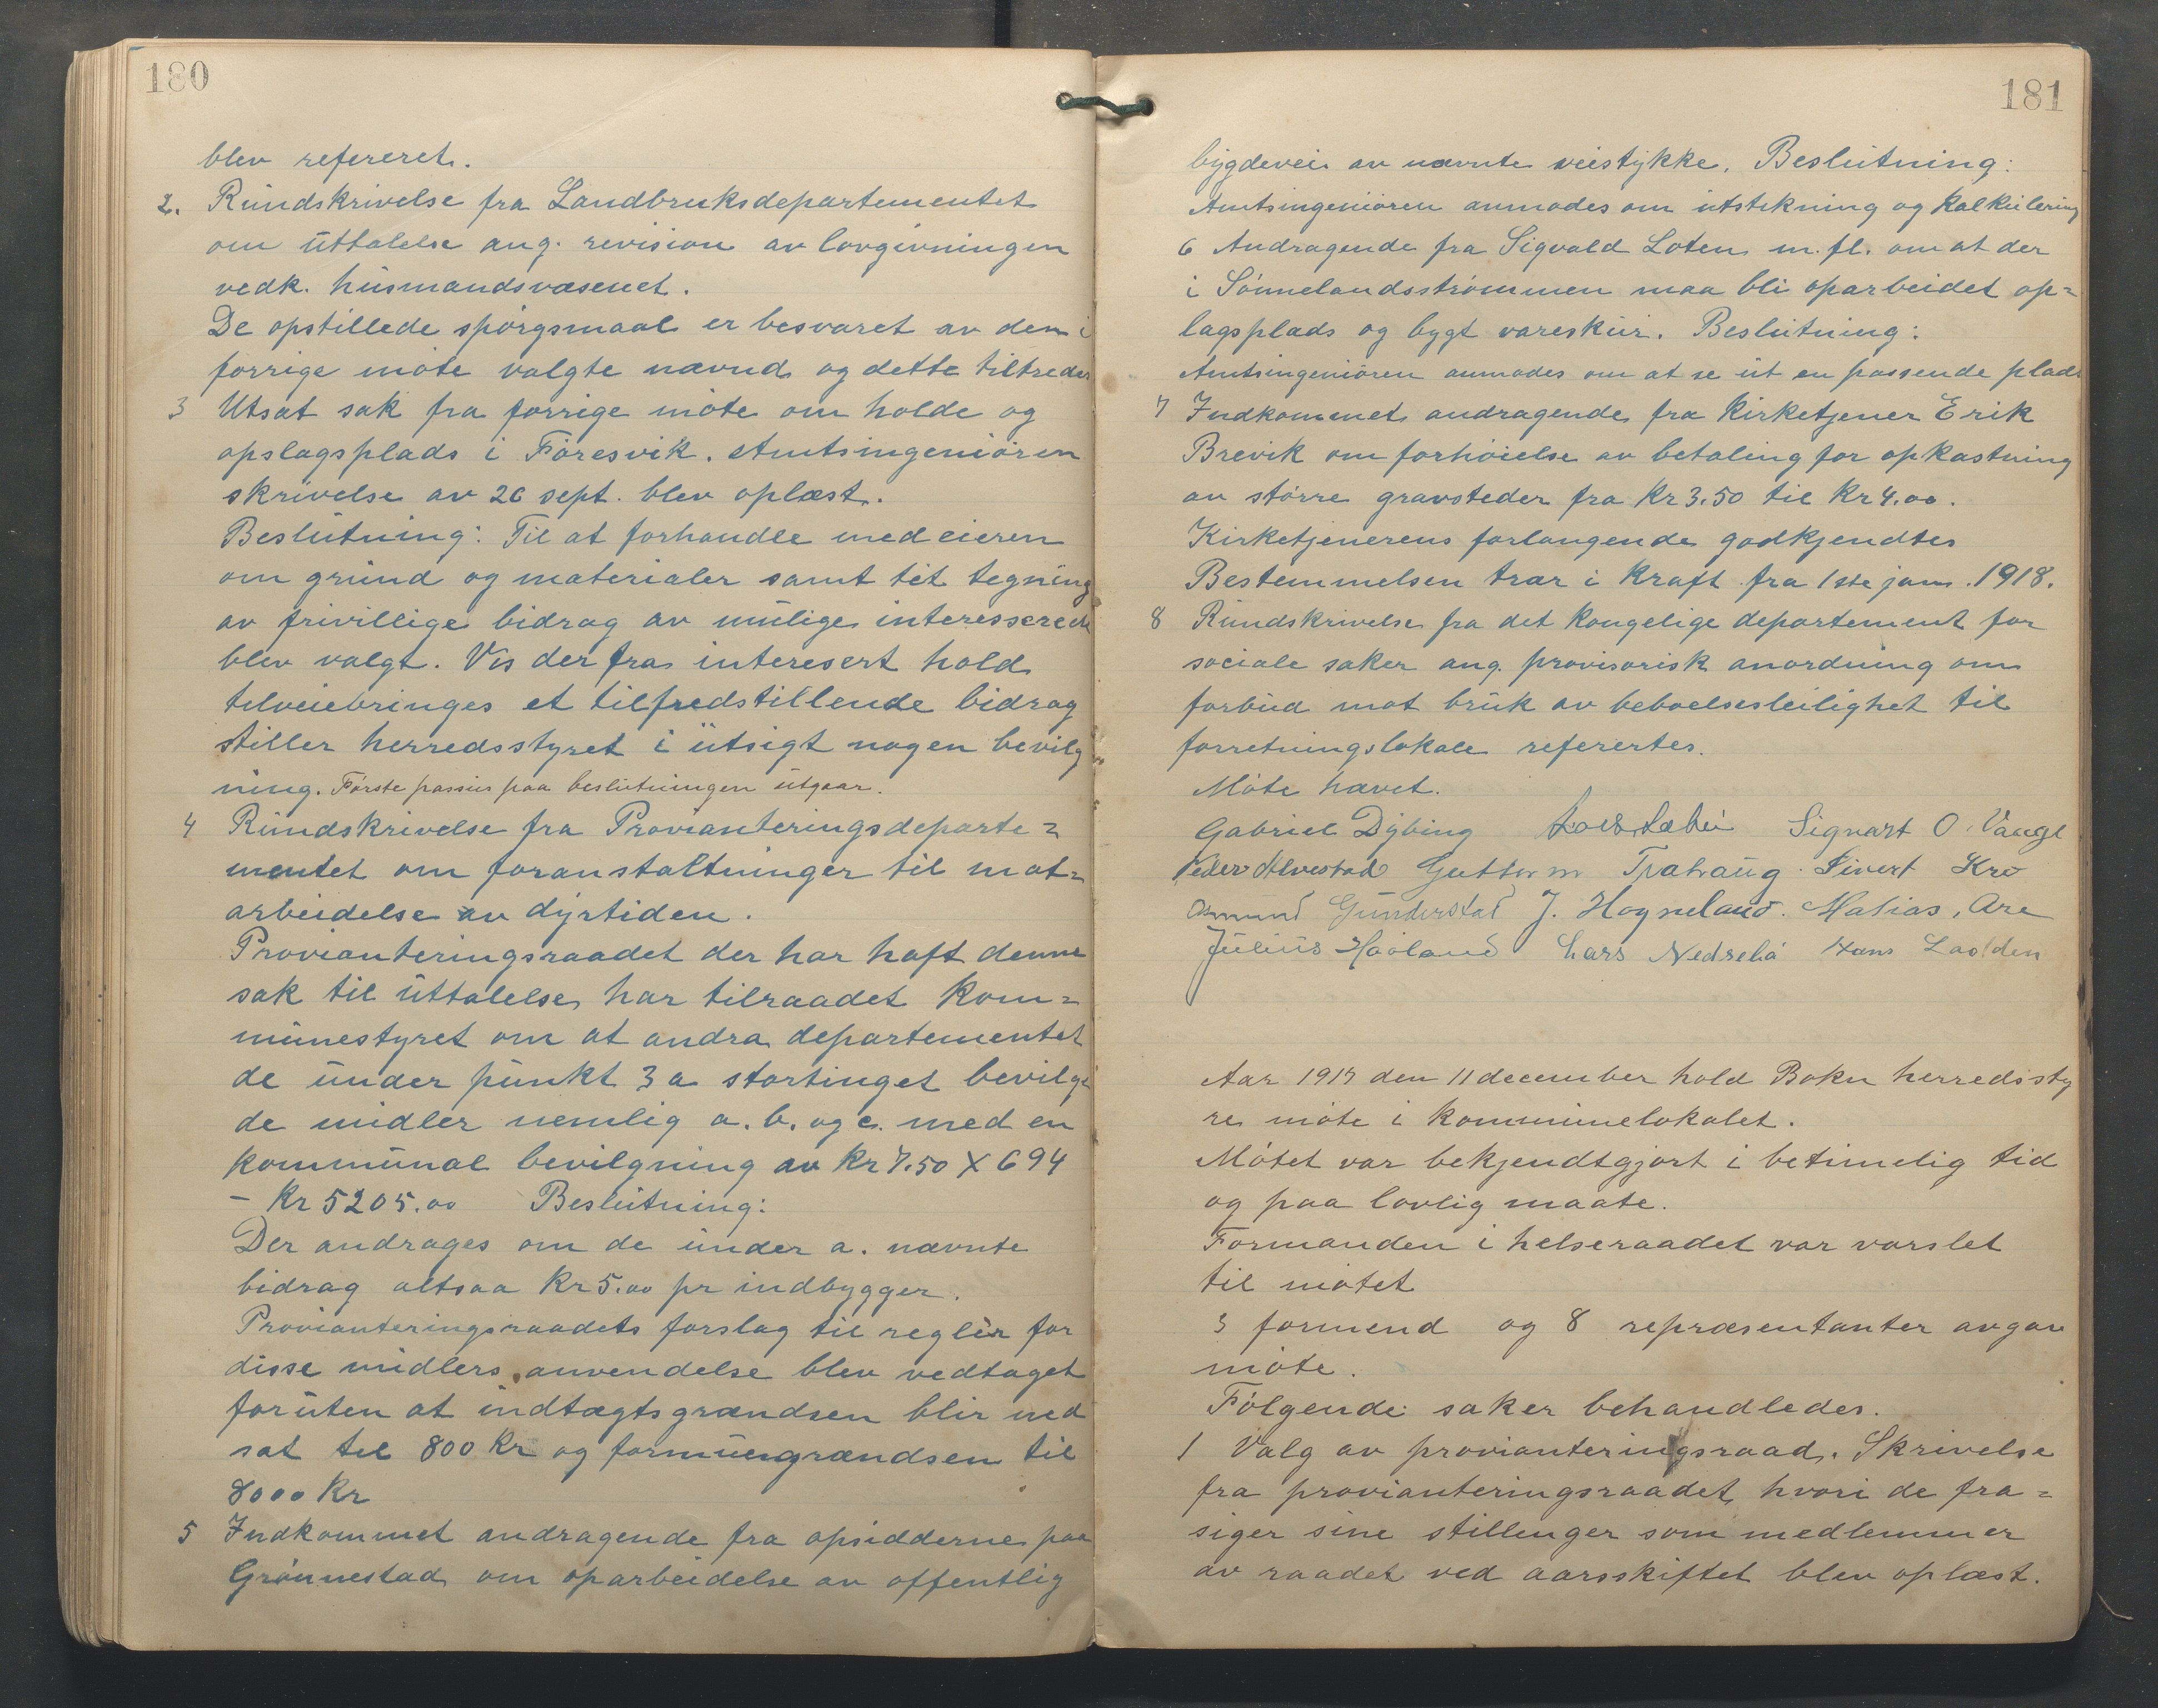 180
blev refereret.
2. Rundskrivelse fra Landbruksdepartementet
om uttalelse ang. revision av lovgivningen
vedk. husmandsvæsenet.
De opstillede spørgsmaal er besvaret av den i
forrige møte valgte nævnd og dette tiltredes
3 Utsat sak fra forrige møte om holde og
opslagsplads i Føresvik. Amtsingeniøren
skrivelse av 26 sept. blev oplæst.
Beslutning: Til at forhandle med eieren
om grund og materialer samt tit tegning
av frivillige bidrag av mulige interesserede
blev valgt. Vis der fra interesert hold
tilveiebringes et tilfredstillende bidrag
stiller herredsstyret i utsigt nogen bevilg
ning. Første passus paa beslutningen utgaar.
4 Rundskrivelse fra Provianteringsdeparte=
mentet om foranstaltninger til mot=
arbeidelse av dyrtiden.
Provianteringsraadet der har haft denne
sak til uttalelse har tilraadet kom=
munestyret om at andra departementet
de under punkt 3 a stortinget bevilge
de midler nemlig a. b. og c. med en
kommunal bevilgning av kr 7.50 X 694
- kr 5205.00 Beslutning:
Der andrages om de under a. nævnte
bidrag altsaa kr 5.00 pr indbygger.
Provianteringsraadets forslag til regler for
disse midlers anvendelse blev vedtaget
foruten at indtægtsgrændsen blir ned
sat til 800 kr og formuengrændsen til
8000 kr
5 Indkommet andragende fra opsidderne paa
Grønnestad om oparbeidelse av offentlig
181
bygdevei av nævnte veistykke. Beslutning:
Amtsingeniøren anmodes om utstikning og kalkulering
6 Andragende fra Sigvald Loten m. fl. om at der
i Sønnelandsstrømmen maa bli oparbeidet op=
lagsplads og bygt vareskur. Beslutning:
Amtsingeniøren anmodes om at se ut en passende plads
7 Indkommet andragende fra kirketjener Erik
Brevik om forhøielse av betaling for opkastning
av større gravsteder fra kr 3.50 til kr 4.00.
Kirketjenerens forlangende godkjendtes
Bestemmelsen trær i kraft fra 1ste jan. 1918.
8 Rundskrivelse fra det kongelige departement for
sociale saker ang. provisorisk anordning om
forbud mot bruk av beboelsesleilighet til
forretningslokale refererttes.
Møte hævet.
Gabriel Dybing Sigvart O. Vaage
Peder Alvestad Guttorm Sivert Kro
Gunderstad J. Hogneland. Matias, Are
Julius Haaland Lars Nedrebø Hans
Aar 1917 den 11 december hold Bokn herredssty
re møte i kommunelokalet.
Møtet var bekjendtgjort i betimelig tid
og paa lovlig maate.
Formanden i helseraadet var varslet
til møtet
3 formend og 8 repræsentanter avgav
møte.
Følgende saker behandledes.
1 Valg av provianteringsraad. Skrivelse
fra provianteringsraadet hvori de fra=
siger sine stillinger som medlemmer
av raadet ved aarsskiftet blev oplæst.